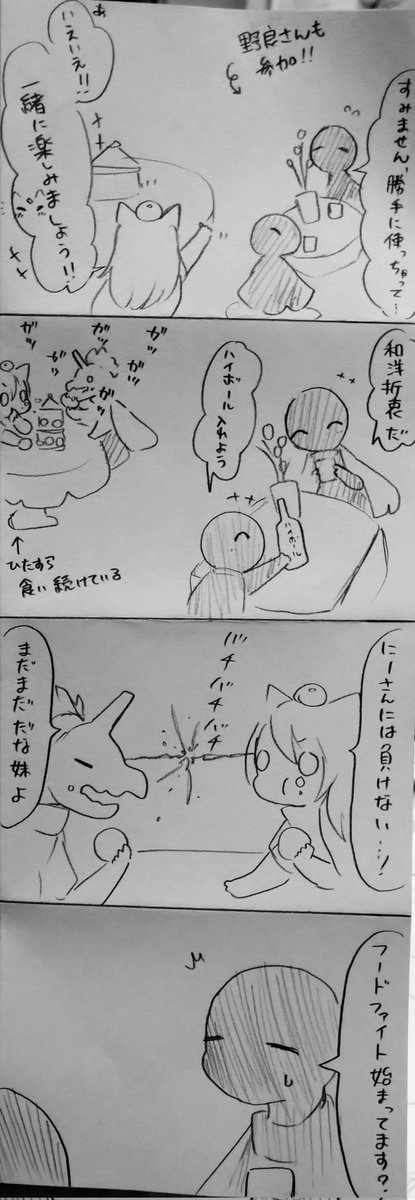 すみません、勝手に使っちゃって…
野良さんも
参加!!
あ
いえいえ!!
一緒に楽しみましょう!!
和洋折衷だ
ハイボール
入れよう
ハイボール
ガッ
ガッ
ガッ
ガッ
ガッ
ひたすら
食い続けている
にーさんには負けない…!
バチバチバチ
まだまだだな妹よ
フードファイト始まってます?